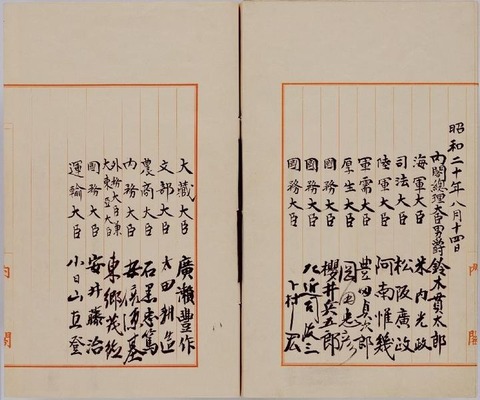 昭和二十年八月十四日
內閣總理大臣男爵 鈴木貫太郎
海軍大臣 米內光政
司法大臣 松阪廣政
陸軍大臣 阿南惟幾
軍需大臣 豊田貞次郎
厚生大臣 岡田忠彥
國務大臣 櫻井兵五郎
國務大臣 左近司政三
國務大臣 下村宏
大藏大臣 廣瀨豊作
文部大臣 太田耕造
農商大臣 石黑忠篤
內務大臣 安倍源基
外務大臣
大東亞大臣 東鄉茂德
國務大臣 安井藤治
運輸大臣 小日山直登
內
閣
內
閣